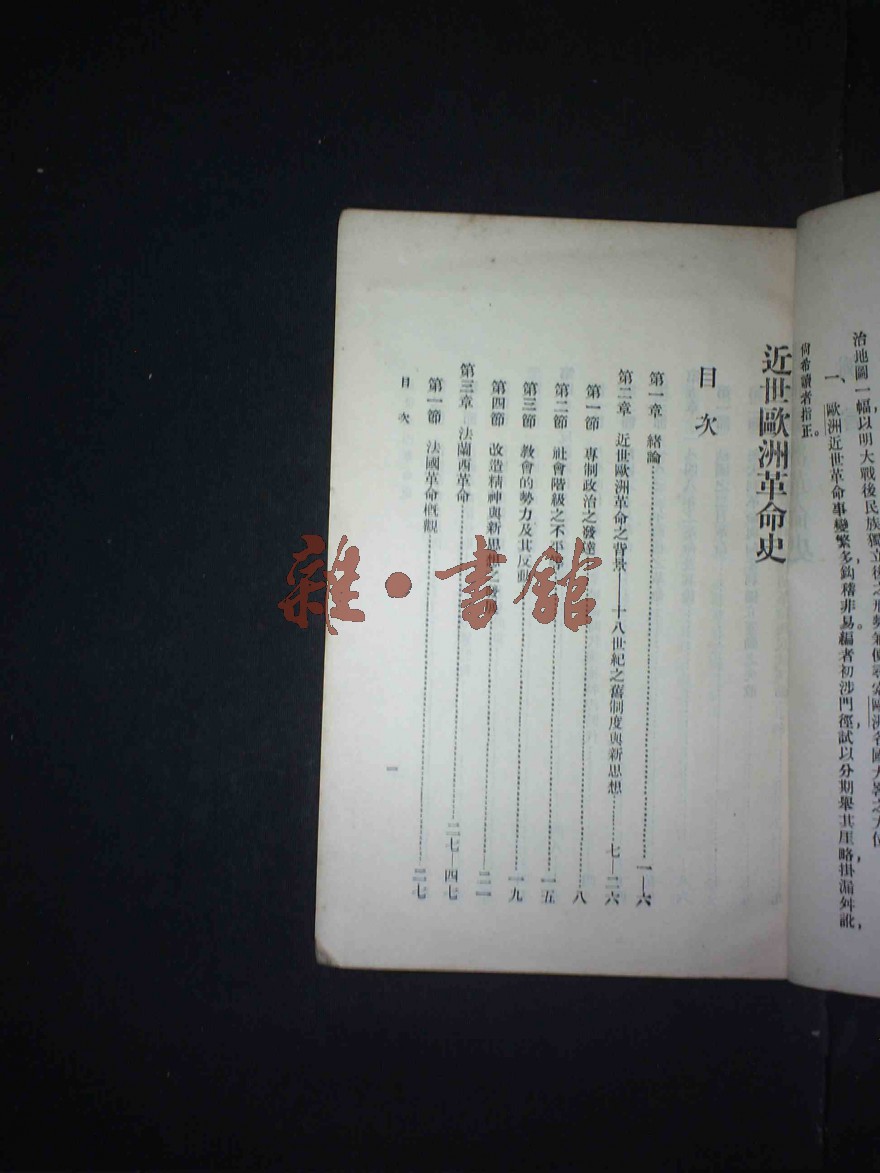 治地圖一幅，以明大戰後民族獨立後之形勢兼便尋索歐洲各國大鎮之方位
一、歐洲近世革命事變繁多，鈎稽非易。編者初涉門徑，試以分期舉其厓略，掛漏舛訛，
尚希讀者指正。
近世歐洲革命史
目次
第一章 緒論 一—六
第二章 近世歐洲革命之背景——十八世紀之舊制度與新思想 七—二六
第一節 專制政治之發達 八
第二節 社會階級之不平 一五
第三節 教會的勢力及其反動 一九
第四節 改造精神與新思想之發展 二二
第三章 法蘭西革命 二七—四七
第一節 法國革命概觀 二七
目次
一
雜·書館